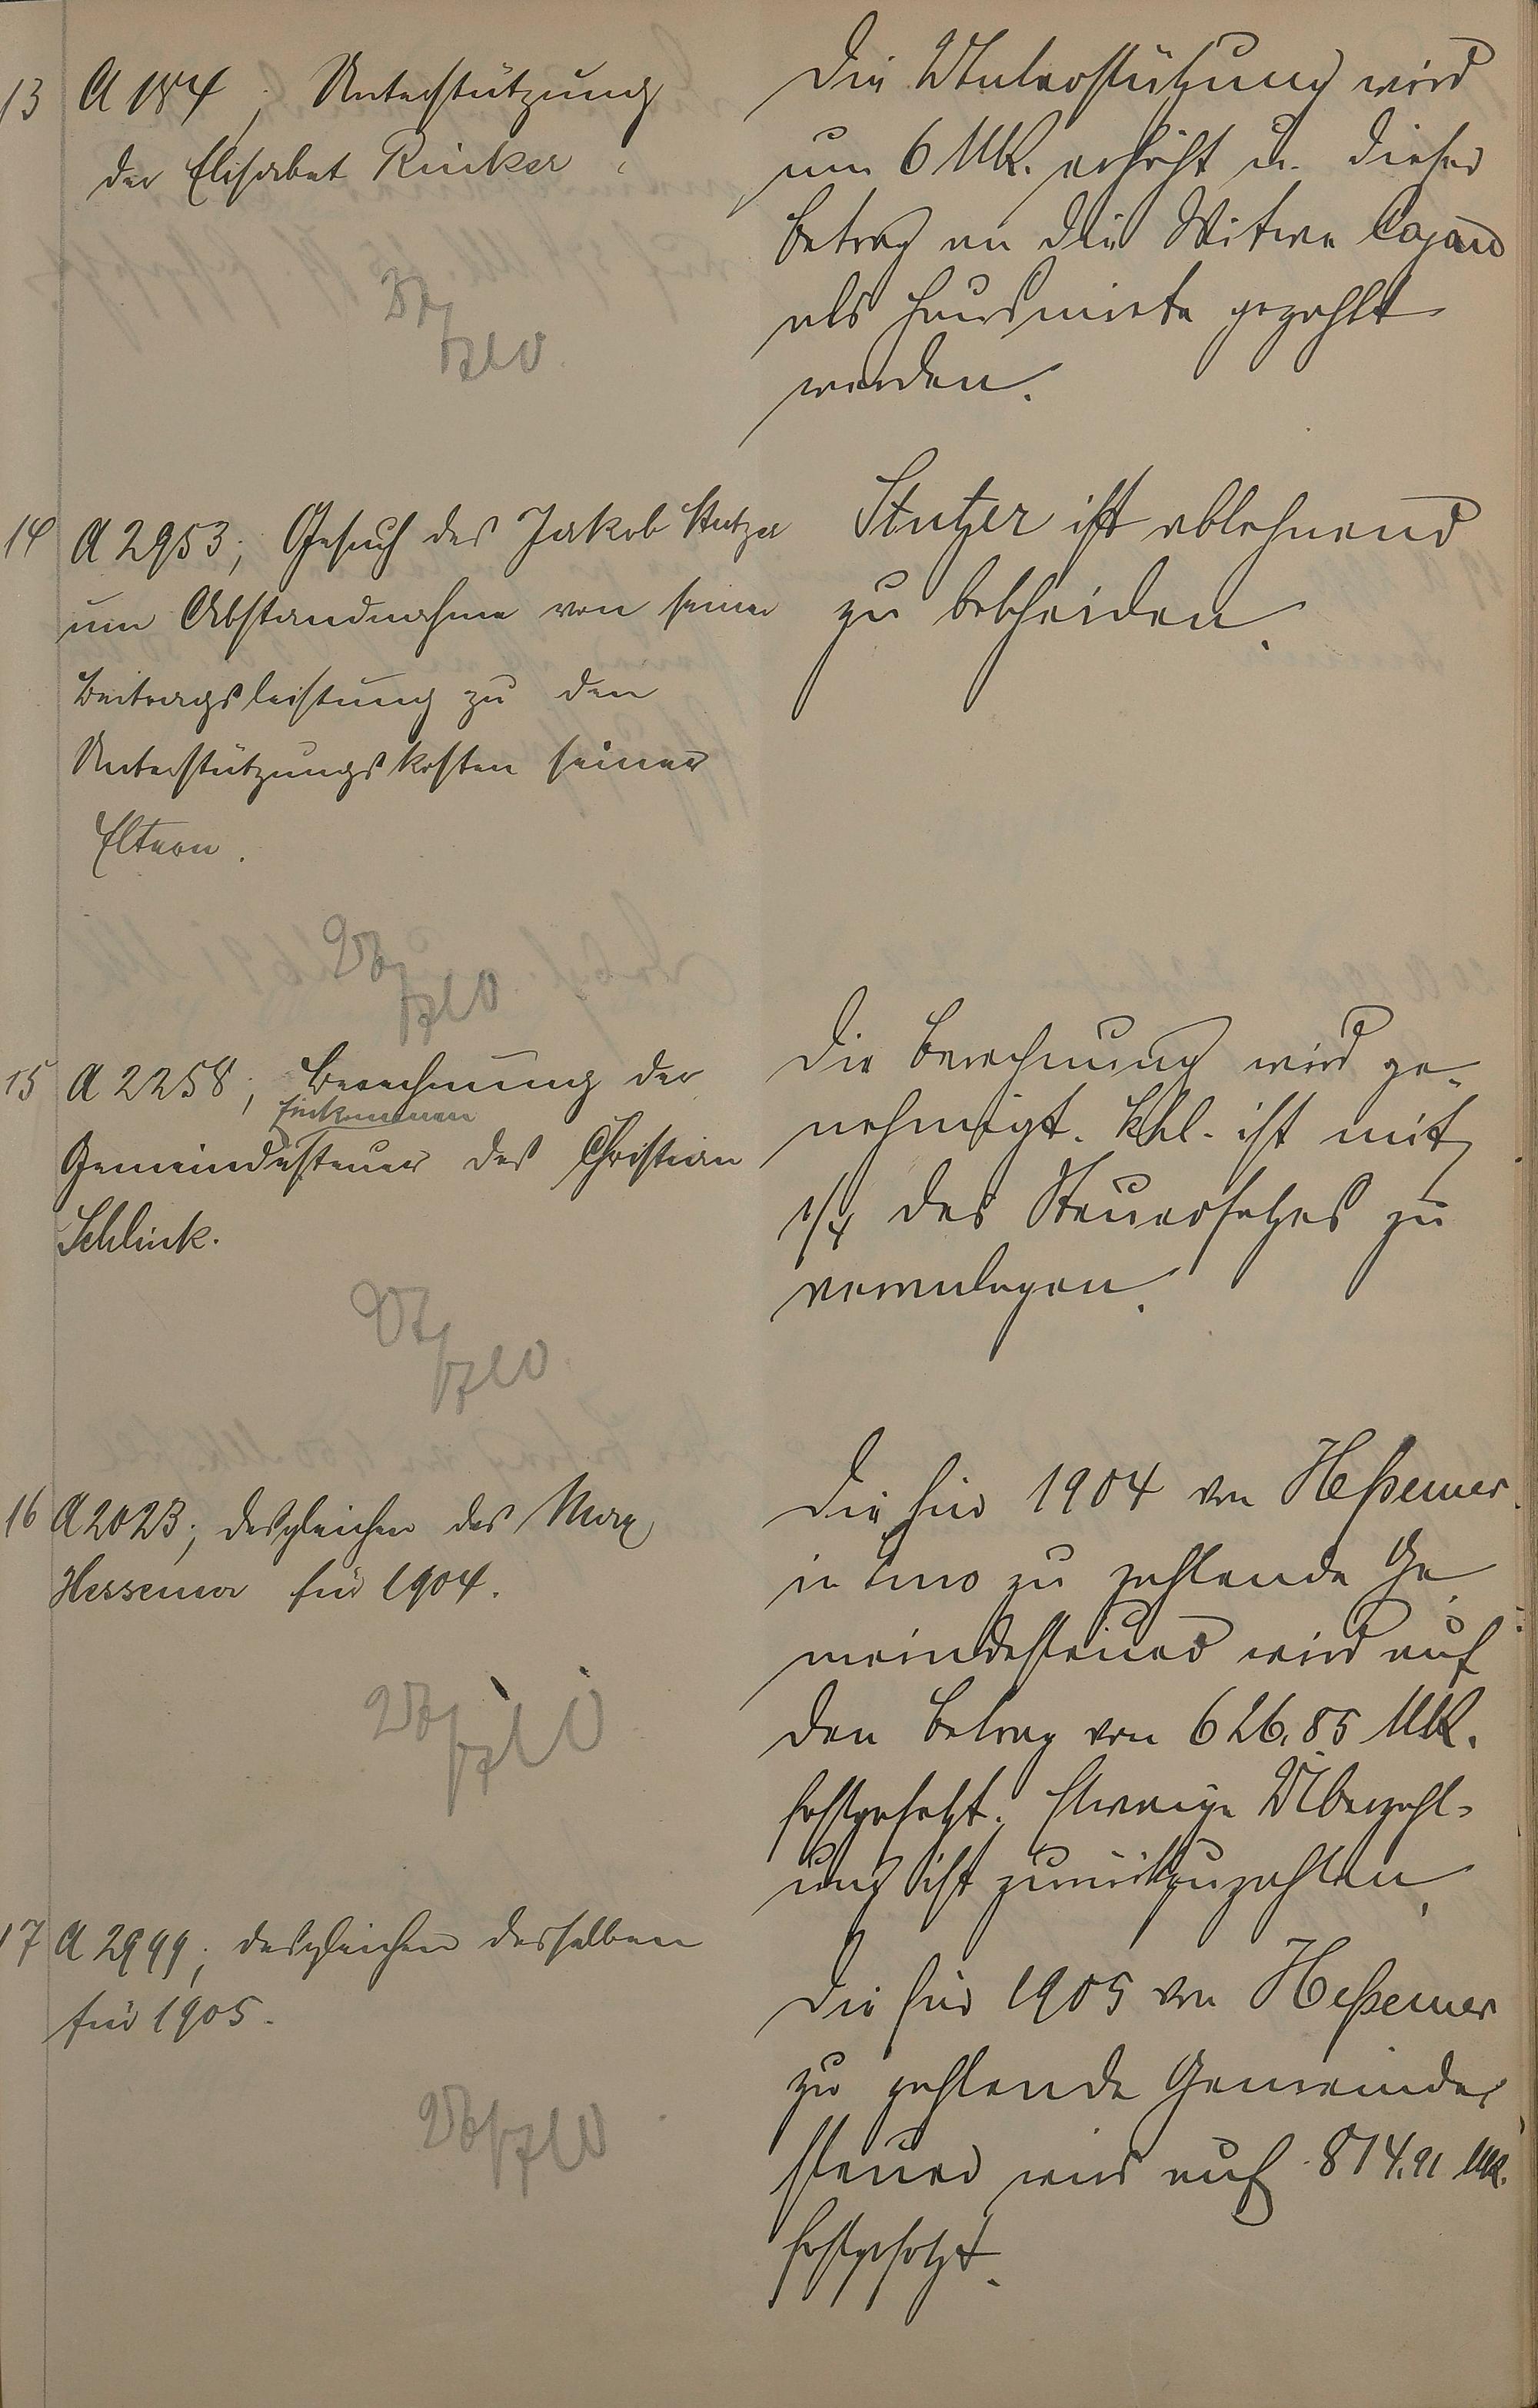 13 A 184; Unterstützung
der Elisabet Rinker
Die Unterstützung wird
um 6 Mk. erhöht u. dieser
Betrag an die Witwe
als Hausmiete gezahlt
werden.
14 A 2953; Gesuch des Jakob Stutzer
um Abstandnahme von seiner
Beitragsleistung zu den
Unterstützungskosten seiner
Eltern.
Stutzer ist ablehnend
zu bescheiden.
15 A 2258; Berechnung der
Einkommen
Gemeindesteuer des Christian
Schlink.
Die Berechnung wird ge-
nehmigt. Schl. ist mit
1/4 des Steuersatzes zu
veranlagen.
16 A 2023; desgleichen des Max
Hessemer für 1904.
Die für 1904 von Heßemer
in zu zahlende Ge-
meindesteuer wird auf
den Betrag von 626,85 Mk.
festgesetzt. Etwaige Überzahl-
ung ist zurückzuzahlen.
17 A 2999; desgleichen desselben
für 1905.
Die für 1905 von Heßemer
zu zahlende Gemeinde-
steuer wird auf 814,91 Mk.
festgesetzt.